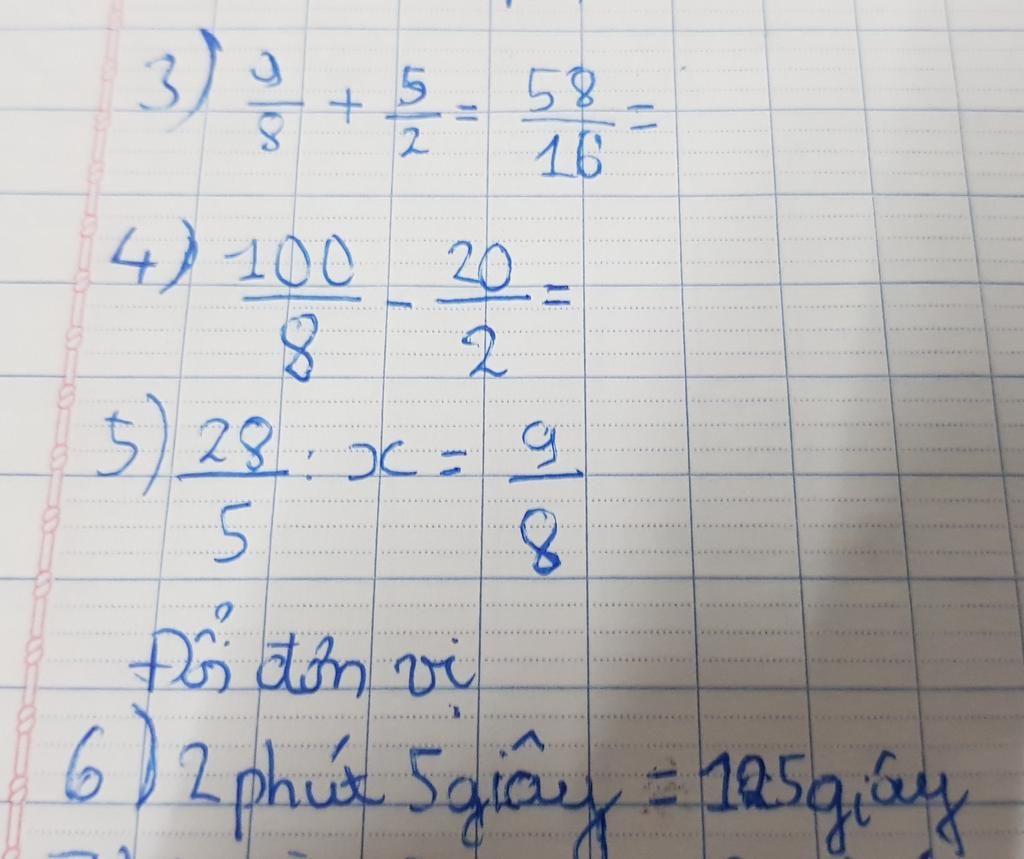 3) 9/8 + 5/2 = 58/16 =
4) 100/8 - 20/2 =
5) 28/5 : x = 9/8
Đổi đơn vị
6) 2 phút 5 giây = 125 giây